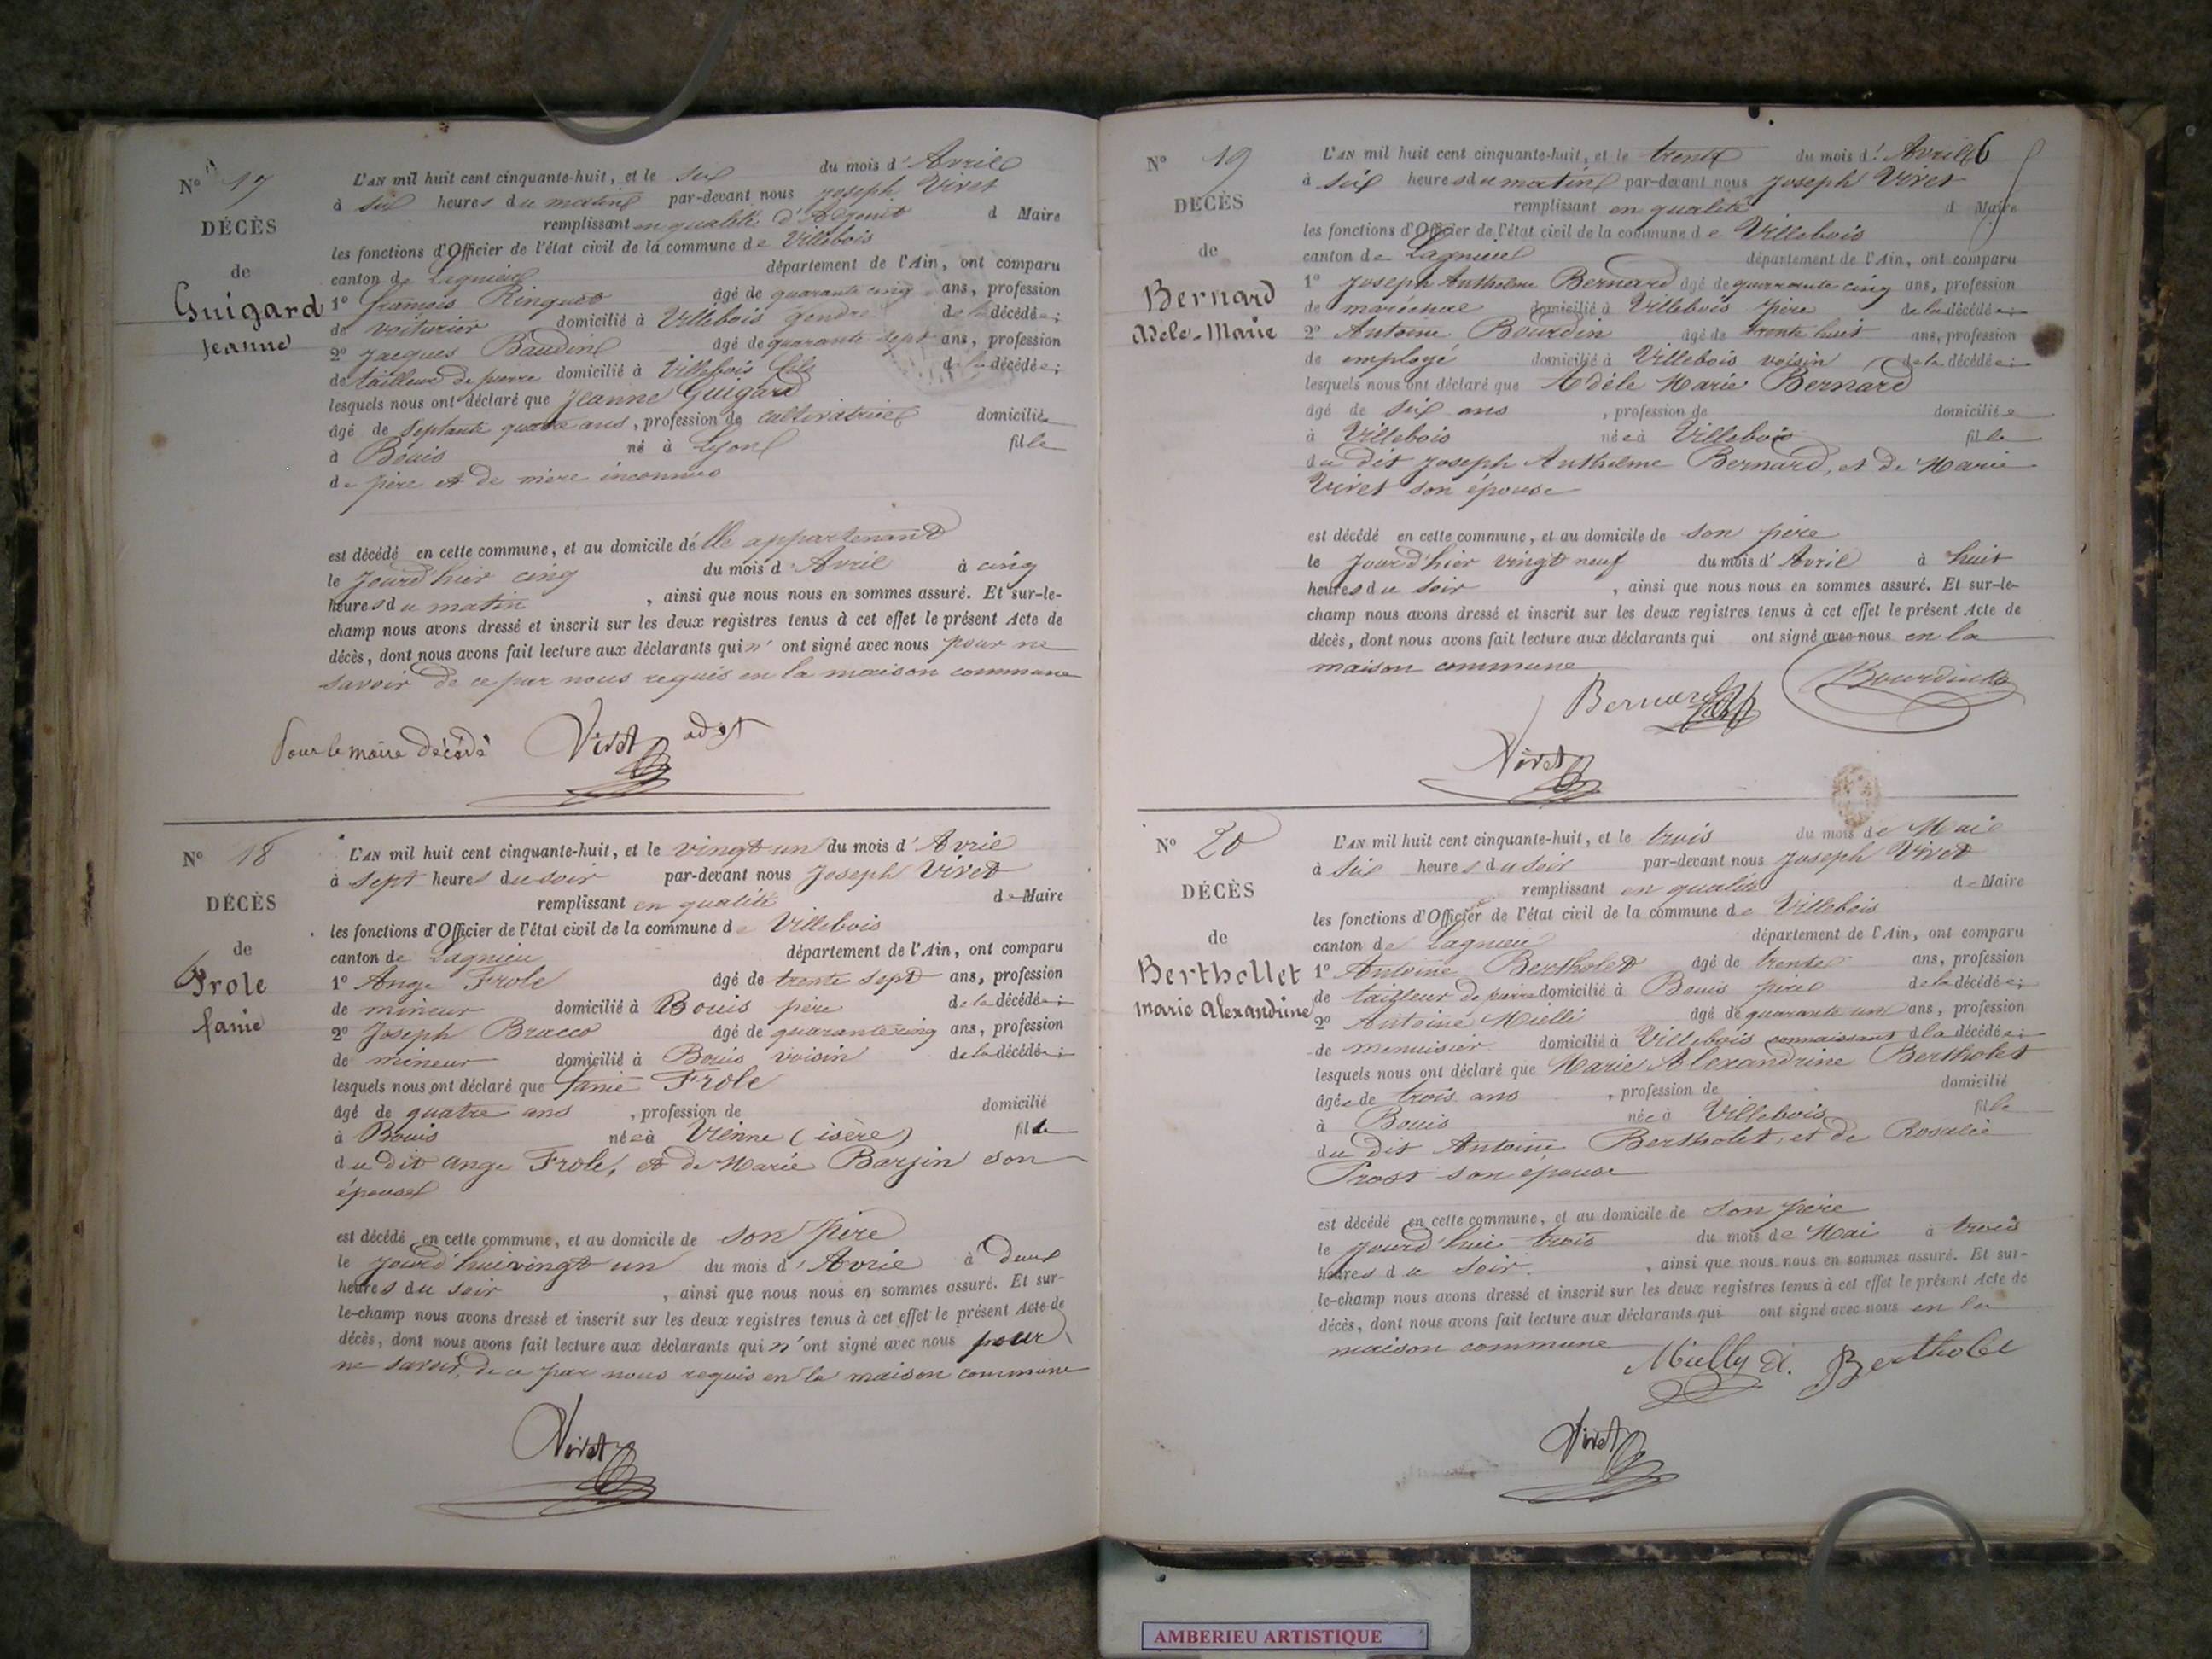 N° 17
DÉCÈS
de
Guigard
Jeanne
L'AN mil huit cent cinquante-huit, et le six du mois d'Avril
à six heures du matin par-devant nous Joseph Vivet
remplissant en qualité d'Adjoint d Maire
les fonctions d'Officier de l'état civil de la commune de Villebois
canton de Lagnieu département de l'Ain, ont comparu
1° françois Ringuet âgé de quarante cinq ans, profession
de voiturier domicilié à Villebois gendre de la décédée;
2° Jacques Baudin âgé de quarante sept ans, profession
de tailleur de pierre domicilié à Villebois fils de la décédée;
lesquels nous ont déclaré que Jeanne Guigard
âgé de septante quatre ans, profession de cultivatrice domiciliée
à Bouis né à Lyon fille
de père et de mère inconnus
est décédé en cette commune, et au domicile de lle appartenant
le jourd'hier cinq du mois d'Avril à cinq
heures du matin, ainsi que nous nous en sommes assuré. Et sur-le-
champ nous avons dressé et inscrit sur les deux registres tenus à cet effet le présent Acte de
décès, dont nous avons fait lecture aux déclarants qui n'ont signé avec nous pour ne
savoir de ce par nous requis en la maison commune
Pour le maire décédé Vivet adjt
N° 18
DÉCÈS
de
Frole
fanie
L'AN mil huit cent cinquante-huit, et le vingt un du mois d'Avril
à sept heures du soir par-devant nous Joseph Vivet
remplissant en qualité de Maire
les fonctions d'Officier de l'état civil de la commune de Villebois
canton de Lagnieu département de l'Ain, ont comparu
1° Ange Frole âgé de trente sept ans, profession
de mineur domicilié à Bouis père de la décédée;
2° Joseph Bracco âgé de quarante cinq ans, profession
de mineur domicilié à Bouis voisin de la décédée;
lesquels nous ont déclaré que fanie Frole
âgé de quatre ans, profession de domicilié
à Bouis née à Vienne (isère) fille
du dit ange Frole, et de Marie Barjin son
épouse
est décédé en cette commune, et au domicile de son père
le jourd'hui vingt un du mois d'Avril à deux
heures du soir, ainsi que nous nous en sommes assuré. Et sur-
le-champ nous avons dressé et inscrit sur les deux registres tenus à cet effet le présent Acte de
décès, dont nous avons fait lecture aux déclarants qui n'ont signé avec nous pour
ne savoir, de ce par nous requis en la maison commune
Vivet
N° 19
DÉCÈS
de
Bernard
Adèle-Marie
L'AN mil huit cent cinquante-huit, et le trente du mois d'Avril 6
à six heures du matin par-devant nous Joseph Vivet
remplissant en qualité d Maire
les fonctions d'Officier de l'état civil de la commune de Villebois
canton de Lagnieu département de l'Ain, ont comparu
1° Joseph Anthelme Bernard âgé de quarante cinq ans, profession
de maréchal domicilié à Villebois père de la décédée;
2° Antoine Bourdin âgé de trente huit ans, profession
de employé domicilié à Villebois voisin de la décédée;
lesquels nous ont déclaré que Adèle Marie Bernard
âgé de six ans, profession de domiciliée
à Villebois née à Villebois fille
du dit Joseph Anthelme Bernard, et de Marie
Vivet son épouse
est décédé en cette commune, et au domicile de son père
le jourd'hier vingt neuf du mois d'Avril à huit
heures du soir, ainsi que nous nous en sommes assuré. Et sur-le-
champ nous avons dressé et inscrit sur les deux registres tenus à cet effet le présent Acte de
décès, dont nous avons fait lecture aux déclarants qui ont signé avec nous en la
maison commune
Bernard Bourdin
Vivet
N° 20
DÉCÈS
de
Berthollet
marie alexandrine
L'AN mil huit cent cinquante-huit, et le trois du mois de Mai
à six heures du soir par-devant nous Joseph Vivet
remplissant en qualité de Maire
les fonctions d'Officier de l'état civil de la commune de Villebois
canton de Lagnieu département de l'Ain, ont comparu
1° Antoine Bertholet âgé de trente ans, profession
de tailleur de pierre domicilié à Bouis père de la décédée;
2° Antoine Mielli âgé de quarante un ans, profession
de menuisier domicilié à Villebois connaissant d la décédée;
lesquels nous ont déclaré que Marie Alexandrine Bertholet
âgée de trois ans, profession de domicilié
à Bouis née à Villebois fille
du dit Antoine Bertholet, et de Rosalie
Prost son épouse
est décédé en cette commune, et au domicile de son père
le jourd'hui trois du mois de Mai à trois
heures du soir, ainsi que nous nous en sommes assuré. Et sur-
le-champ nous avons dressé et inscrit sur les deux registres tenus à cet effet le présent Acte de
décès, dont nous avons fait lecture aux déclarants qui ont signé avec nous en la
maison commune
Mielly A. Bertholet
Vivet
AMBERIEU ARTISTIQUE